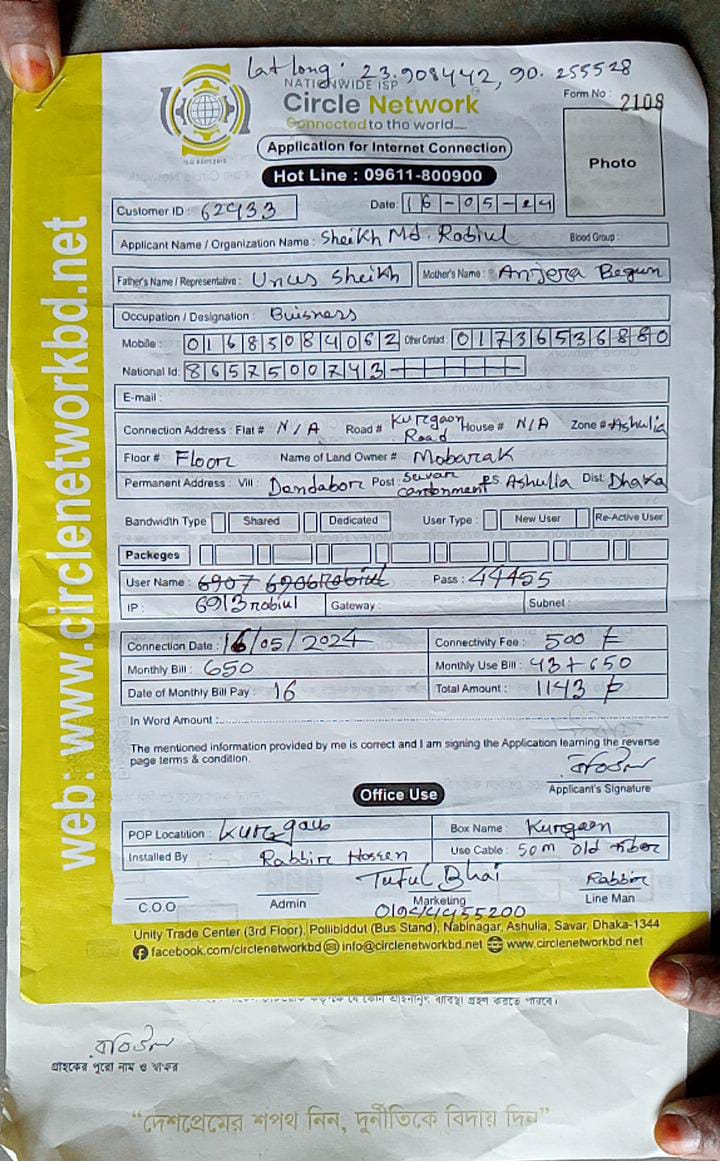 Lat long: 23.908442, 90.255528
NATIONWIDE ISP
Circle Network
Connected to the world....
ISO 9001:2015
Form No : 2108
Application for Internet Connection
Photo
Hot Line : 09611-800900
Customer ID : 62933 Date: 16-05-24
Applicant Name / Organization Name : Sheikh Md. Robiul Blood Group :
Father's Name / Representative : Unus Sheikh Mother's Name : Anjera Begun
Occupation / Designation : Buisness
Mobile : 01685084062 Other Contact : 01736536880
National Id: 8657500743
E-mail :
Connection Address : Flat # N/A Road # Kurgaon Road House # N/A Zone # Ashulia
Floor # Floor Name of Land Owner # Mobarak
Permanent Address : Vill : Dendabor Post : Savar cantonment P.S. Ashulia Dist: Dhaka
Bandwidth Type Shared Dedicated User Type : New User Re-Active User
Packeges
User Name : 6907 6906Robiul Pass : 44455
IP : 6913robiul Gateway : Subnet :
Connection Date : 16/05/2024 Connectivity Fee : 500 ৳
Monthly Bill : 650 Monthly Use Bill : 43+650
Date of Monthly Bill Pay : 16 Total Amount : 1143 ৳
In Word Amount :
The mentioned information provided by me is correct and I am signing the Application learning the reverse
page terms & condition.
রবিউল
Applicant's Signature
Office Use
POP Locatition : Kurgaon Box Name : Kurgaon
Installed By : Rabbir Hossen Use Cable : 50m old fiber
Tutul Bhai Rabbir
C.O.O Admin Marketing Line Man
Unity Trade Center (3rd Floor), Pollibiddut (Bus Stand), Nabinagar, Ashulia, Savar, Dhaka-1344
facebook.com/circlenetworkbd info@circlenetworkbd.net www.circlenetworkbd.net
web: www.circlenetworkbd.net
রবিউল
গ্রাহকের পুরো নাম ও স্বাক্ষর
“দেশপ্রেমের শপথ নিন, দুর্নীতিকে বিদায় দিন”